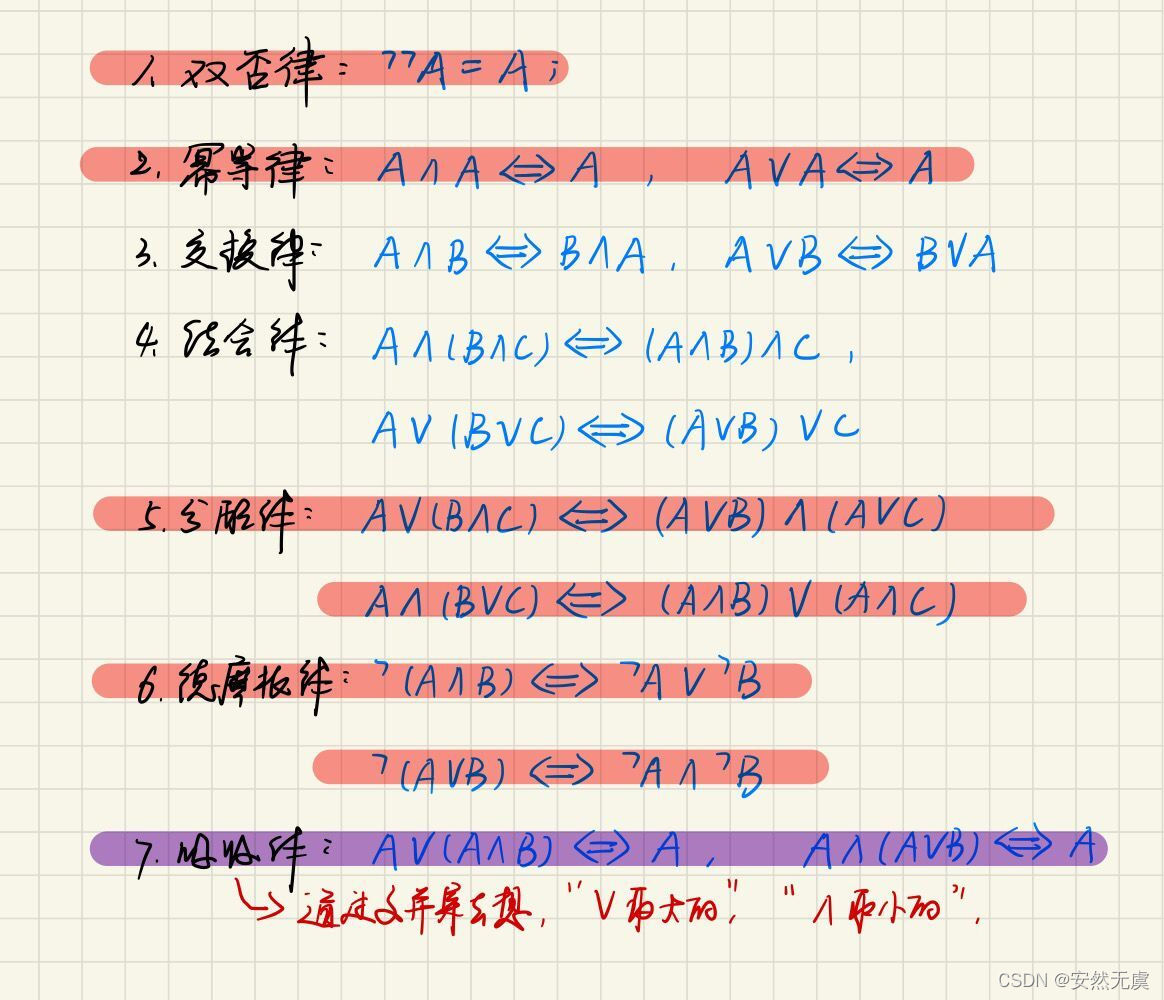 1. 双否律: ¬¬A = A;
2. 幂等律: A∧A⇔A , A∨A⇔A
3. 交换律: A∧B⇔B∧A , A∨B⇔B∨A
4. 结合律: A∧(B∧C)⇔(A∧B)∧C ,
A∨(B∨C)⇔(A∨B)∨C
5. 分配律: A∨(B∧C)⇔(A∨B)∧(A∨C)
A∧(B∨C)⇔(A∧B)∨(A∧C)
6. 德摩根律: ¬(A∧B)⇔¬A∨¬B
¬(A∨B)⇔¬A∧¬B
7. 吸收律: A∨(A∧B)⇔A , A∧(A∨B)⇔A
↳ 通过交并集去想, “∨取大的”, “∧取小的”.
CSDN @安然无虞